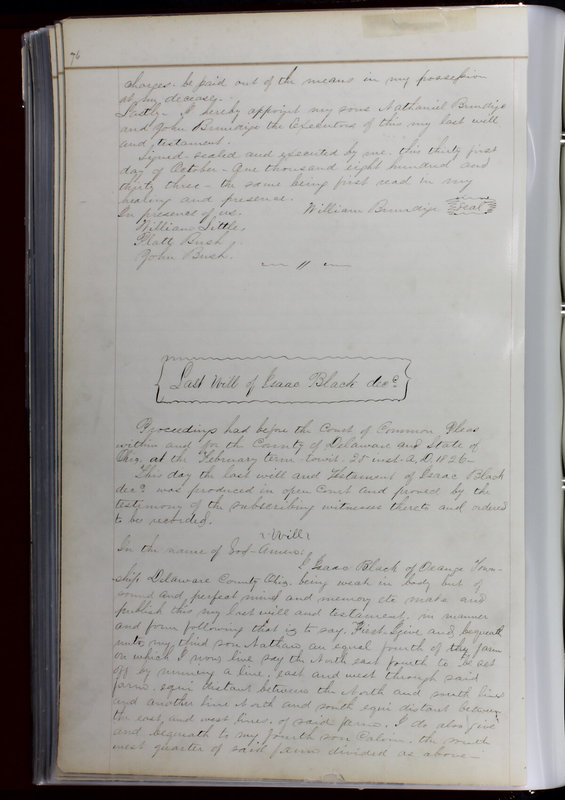 76
charges - be paid out of the means in my possession
at my decease -
Lastly - I hereby appoint my sons Nathaniel Brundige
and John Brundige the Executors of this my last will
and testament.
Signed - sealed and executed by me. this thirty first
day of October - One thousand eight hundred and
thirty three - the same being first read in my
healing and presence.
In presence of us. William Brundige Seal
William Little,
Platt Bush
John Bush.
— " —
Last Will of Isaac Black decd
Proceedings had before the Court of Common Pleas
within and for the County of Delaware and State of
Ohio, at the February term towit. 28 inst. A.D. 1826 -
This day the last will and testament of Isaac Black
decd was produced in open Court and proved by the
testimony of the subscribing witnesses thereto and ordered
to be recorded.
Will
In the name of God - Amen:
I Isaac Black of Orange Town-
ship Delaware County Ohio. being weak in body but of
sound and perfect mind and memory etc make and
publish this my last will and testament, in manner
and form following that is to say. First I give and bequeath
unto my third son Nathan an equal fourth of the farm
on which I now live say the North east fourth to be set
off by running a line, east and west through said
farm. equi distant between the North and south lines
and another line North and south equi distant between
the east, and west lines. of said farm. I do also give
and bequeath to my fourth son Calvin. the south
west quarter of said farm divided as above -